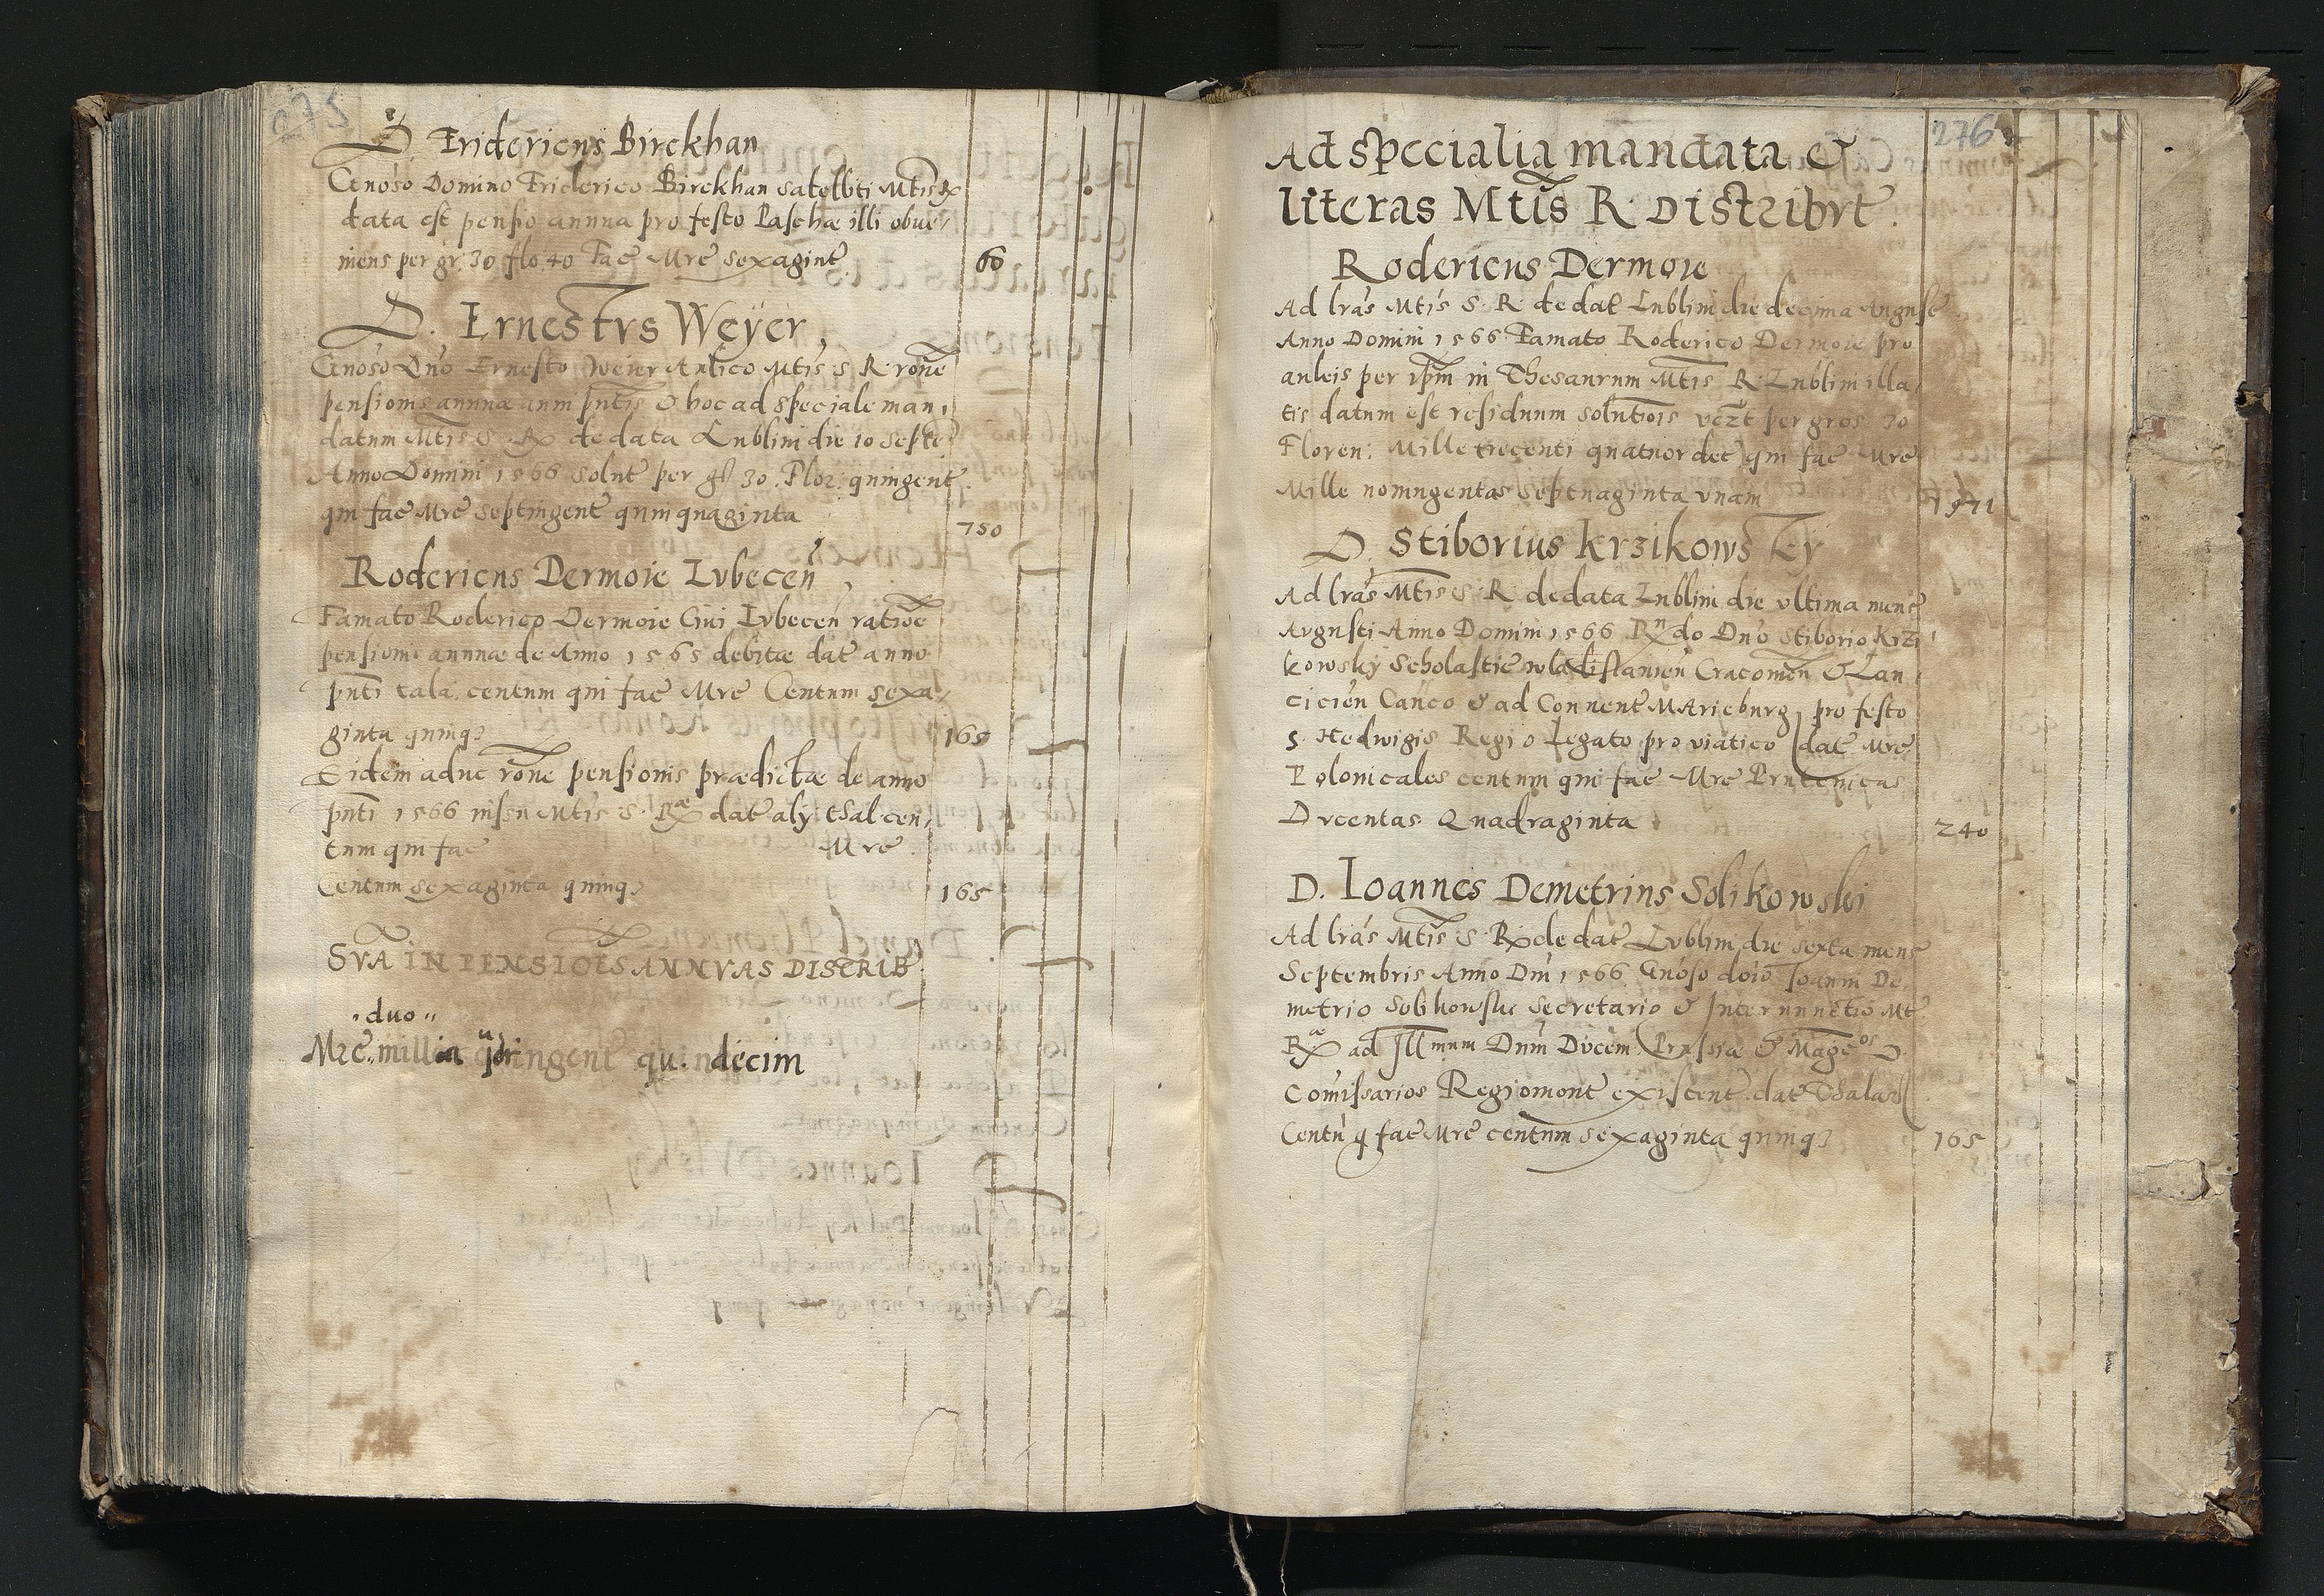 275
D. Fridericus Birckhan
Genoso Domino Friderico Birckhan satelliti Mtis Rx
data est pensio annua pro festo Paschæ illi obue,
niens per gr. 30 flo. 40 Fac Mre sexagint 60
D. Ernestus Weyer
Genoso Dno Ernesto Weier Aulico Mtis S R rone
pensionis annuæ anni pntis & hoc ad speciale man,
datum Mtis S. Rx de data Lublini die 10 Septe
Anno Domini 1566 solut per gr 30. Flor. quingent
qui fac Mre septingent quinquaginta 750
Rodericus Dermoie Lubecen
Famato Roderico Dermoie Ciui Lubecen ratioe
pensionis annuæ de Anno 1565 debitæ dat anno
pnti tala. centum qui fac Mre Centum sexa,
ginta quinq3 165
Eidem aduc rone pensionis prædictæ de anno
pnti 1566 iussu Mtis S. Rxæ dat alij thal. cen,
tum qui fac Mre
Centum sexaginta quinq3 165
SVA IN PENSIOES ANNVAS DISTRIB
"duo"
Mre. millia qdringent quindecim
276
Ad specialia mandata &
literas Mtis R Distribvt.
Rodericus Dermoie
Ad lras Mtis S. R. de dat Lublini die decima August
Anno Domini 1566 Famato Roderico Dermoie pro
auleis per ipm in Thesaurum Mtis R. Lublini illa,
tis datum est residuum solutiois vczt per gros 30
Floren: Mille trecenti quatuordec qui fac Mre
Mille noningentas septuaginta vnam 1971
D. Stiborius Krzikowsky
Ad lras Mtis S. R de data Lublini die vltima mens
Augusti Anno Domini 1566 Rndo Dno Stiborio Krzi,
kowsky Scholastic wladislauien Cracouien & Lan,
cicien Canco & ad Conuent Marieburg, pro festo
S. Hedwigis Regio Legato pro viatico dat Mre
Polonicales centum qui fac Mre Prutenicas
Ducentas Quadraginta 240
D. Ioannes Demetrius Solikowski
Ad lras Mtis S. Rx de dat Lublini die sexta mens
Septembris Anno Dni 1566 Gnoso doio Joanni De,
metrio Solikowski Secretario & Internunctio Mt
Rxæ ad Jllmum Dnm Ducem Prussiæ & Mageos D.
Comissarios Regiomont existent dat Thalar
Centu q fac Mre centum sexaginta quinq3 165